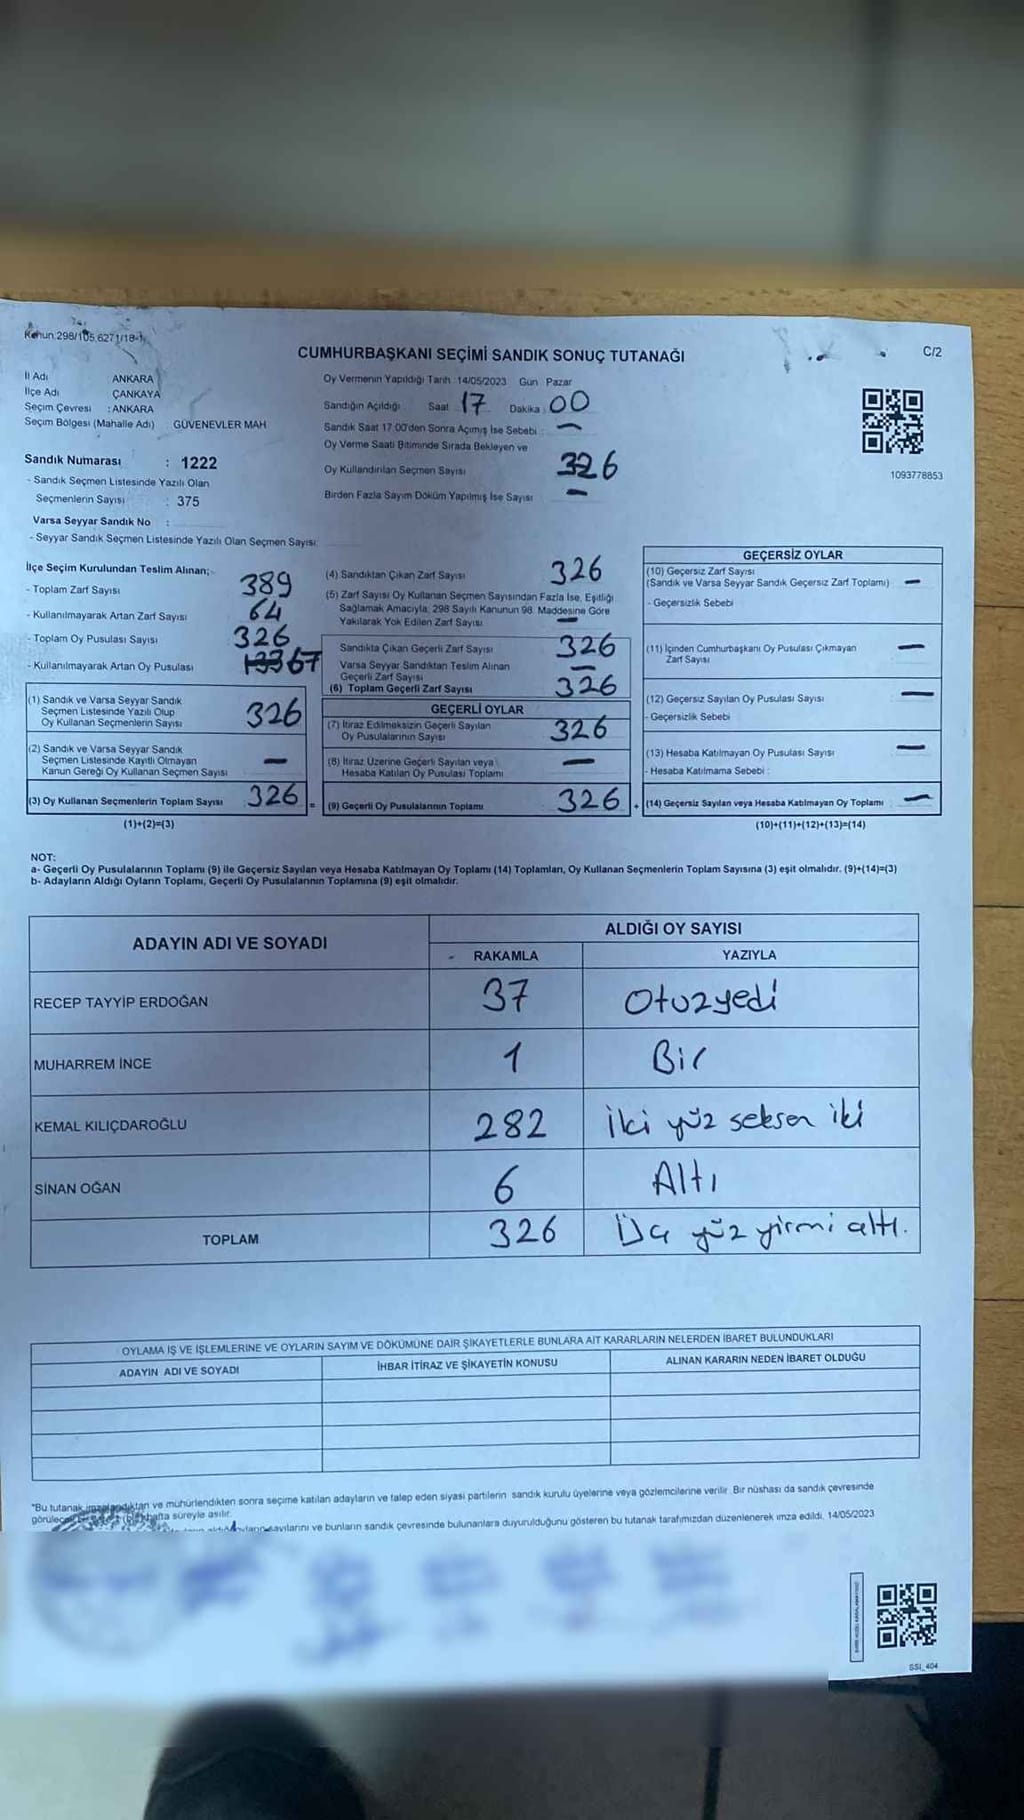 Kanun:298/105,6271/18-1
CUMHURBAŞKANI SEÇİMİ SANDIK SONUÇ TUTANAĞI
C/2
İl Adı ANKARA
İlçe Adı ÇANKAYA
Seçim Çevresi : ANKARA
Seçim Bölgesi (Mahalle Adı) GÜVENEVLER MAH
Sandık Numarası : 1222
- Sandık Seçmen Listesinde Yazılı Olan
Seçmenlerin Sayısı : 375
Varsa Seyyar Sandık No :
- Seyyar Sandık Seçmen Listesinde Yazılı Olan Seçmen Sayısı:
Oy Vermenin Yapıldığı Tarih 14/05/2023 Gün Pazar
Sandığın Açıldığı Saat 17 Dakika : 00
Sandık Saat 17.00'den Sonra Açımış İse Sebebi : —
Oy Verme Saati Bitiminde Sırada Bekleyen ve
Oy Kullandırılan Seçmen Sayısı 326
Birden Fazla Sayım Döküm Yapılmış İse Sayısı —
1093778853
İlçe Seçim Kurulundan Teslim Alınan;
- Toplam Zarf Sayısı 389
- Kullanılmayarak Artan Zarf Sayısı 64
- Toplam Oy Pusulası Sayısı 326
- Kullanılmayarak Artan Oy Pusulası 67
(1) Sandık ve Varsa Seyyar Sandık
Seçmen Listesinde Yazılı Olup
Oy Kullanan Seçmenlerin Sayısı 326
(2) Sandık ve Varsa Seyyar Sandık
Seçmen Listesinde Kayıtlı Olmayan
Kanun Gereği Oy Kullanan Seçmen Sayısı —
(3) Oy Kullanan Seçmenlerin Toplam Sayısı 326 =
(1)+(2)=(3)
(4) Sandıktan Çıkan Zarf Sayısı 326
(5) Zarf Sayısı Oy Kullanan Seçmen Sayısından Fazla İse, Eşitliği
Sağlamak Amacıyla, 298 Sayılı Kanunun 98. Maddesine Göre
Yakılarak Yok Edilen Zarf Sayısı —
Sandıkta Çıkan Geçerli Zarf Sayısı 326
Varsa Seyyar Sandıktan Teslim Alınan
Geçerli Zarf Sayısı —
(6) Toplam Geçerli Zarf Sayısı 326
GEÇERLİ OYLAR
(7) İtiraz Edilmeksizin Geçerli Sayılan
Oy Pusulalarının Sayısı 326
(8) İtiraz Üzerine Geçerli Sayılan veya
Hesaba Katılan Oy Pusulası Toplamı —
(9) Geçerli Oy Pusulalarının Toplamı 326 +
GEÇERSİZ OYLAR
(10) Geçersiz Zarf Sayısı
(Sandık ve Varsa Seyyar Sandık Geçersiz Zarf Toplamı) —
- Geçersizlik Sebebi
(11) İçinden Cumhurbaşkanı Oy Pusulası Çıkmayan
Zarf Sayısı —
(12) Geçersiz Sayılan Oy Pusulası Sayısı —
- Geçersizlik Sebebi
(13) Hesaba Katılmayan Oy Pusulası Sayısı —
- Hesaba Katılmama Sebebi :
(14) Geçersiz Sayılan veya Hesaba Katılmayan Oy Toplamı —
(10)+(11)+(12)+(13)=(14)
NOT:
a- Geçerli Oy Pusulalarının Toplamı (9) ile Geçersiz Sayılan veya Hesaba Katılmayan Oy Toplamı (14) Toplamları, Oy Kullanan Seçmenlerin Toplam Sayısına (3) eşit olmalıdır. (9)+(14)=(3)
b- Adayların Aldığı Oyların Toplamı, Geçerli Oy Pusulalarının Toplamına (9) eşit olmalıdır.
ADAYIN ADI VE SOYADI
ALDIĞI OY SAYISI
RAKAMLA YAZIYLA
RECEP TAYYİP ERDOĞAN 37 Otuzyedi
MUHARREM İNCE 1 Bir
KEMAL KILIÇDAROĞLU 282 İki yüz seksen iki
SİNAN OĞAN 6 Altı
TOPLAM 326 Üç yüz yirmi altı.
OYLAMA İŞ VE İŞLEMLERİNE VE OYLARIN SAYIM VE DÖKÜMÜNE DAİR ŞİKAYETLERLE BUNLARA AİT KARARLARIN NELERDEN İBARET BULUNDUKLARI
ADAYIN ADI VE SOYADI İHBAR İTİRAZ VE ŞİKAYETİN KONUSU ALINAN KARARIN NEDEN İBARET OLDUĞU
"Bu tutanak imzalandıktan ve mühürlendikten sonra seçime katılan adayların ve talep eden siyasi partilerin sandık kurulu üyelerine veya gözlemcilerine verilir. Bir nüshası da sandık çevresinde
hafta süreyle asılır.
sayılarını ve bunların sandık çevresinde bulunanlara duyurulduğunu gösteren bu tutanak tarafımızdan düzenlenerek imza edildi. 14/05/2023
SSİ_404